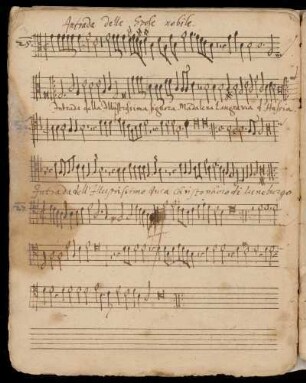 Intrada delle Spose nobile.
25.
Intrada della Illustrissima signora Madalena Lungravia d'Hassia
Intrada dell' Illustrissimo duca Christophoro de Luneborgo